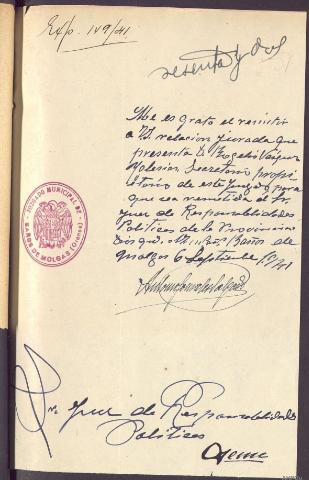 Exp. 149/41
sesenta y dos
Me es grato el remitir
a Vd relacion jurada que
presenta D. Rogelio Vazquez
Iglesias, Secretario propie
tario de este Juzgado para
que sea remitida al Sr.
Juez de Responsabilidades
Politicas de la Provincia
Dios gu. Baños de
Molgas 6 Septiembre 1941
JUZGADO MUNICIPAL DE
BAÑOS DE MOLGAS (Orense)
Sr. Juez de Responsabilidades
Politicas
Orense